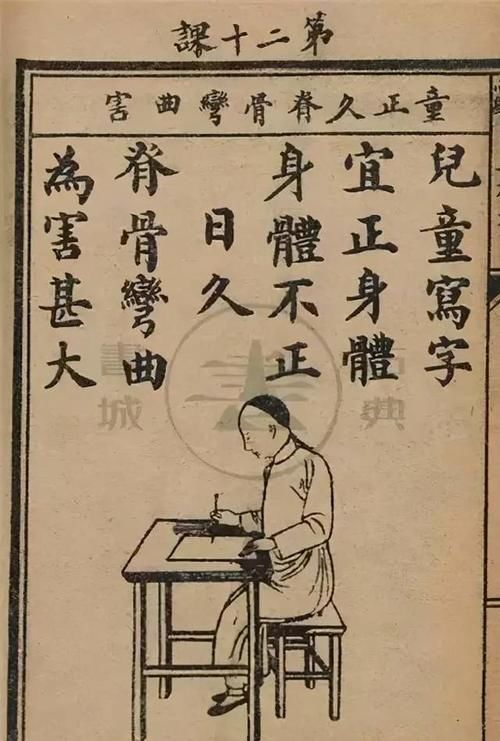 第二十課
童正久脊骨彎曲害
兒童寫字
宜正身體
身體不正
日久
脊骨彎曲
為害甚大
書城
典